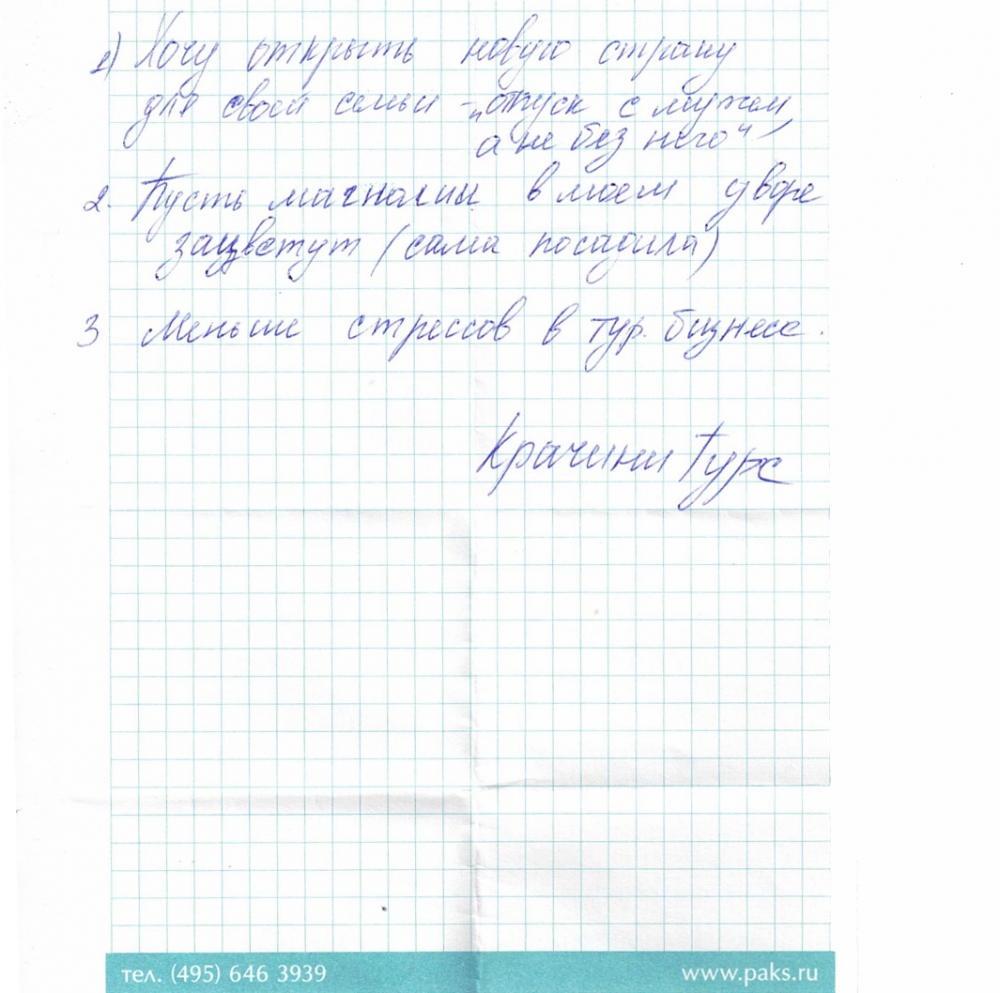 1) Хочу открыть новую страну
для своей семьи - „отпуск с мужем,
а не без него“
2. Пусть магнолии в моем дворе
зацветут (сама посадила)
3 Меньше стрессов в тур. бизнесе.
Крачини Турс
тел. (495) 646 3939 www.paks.ru